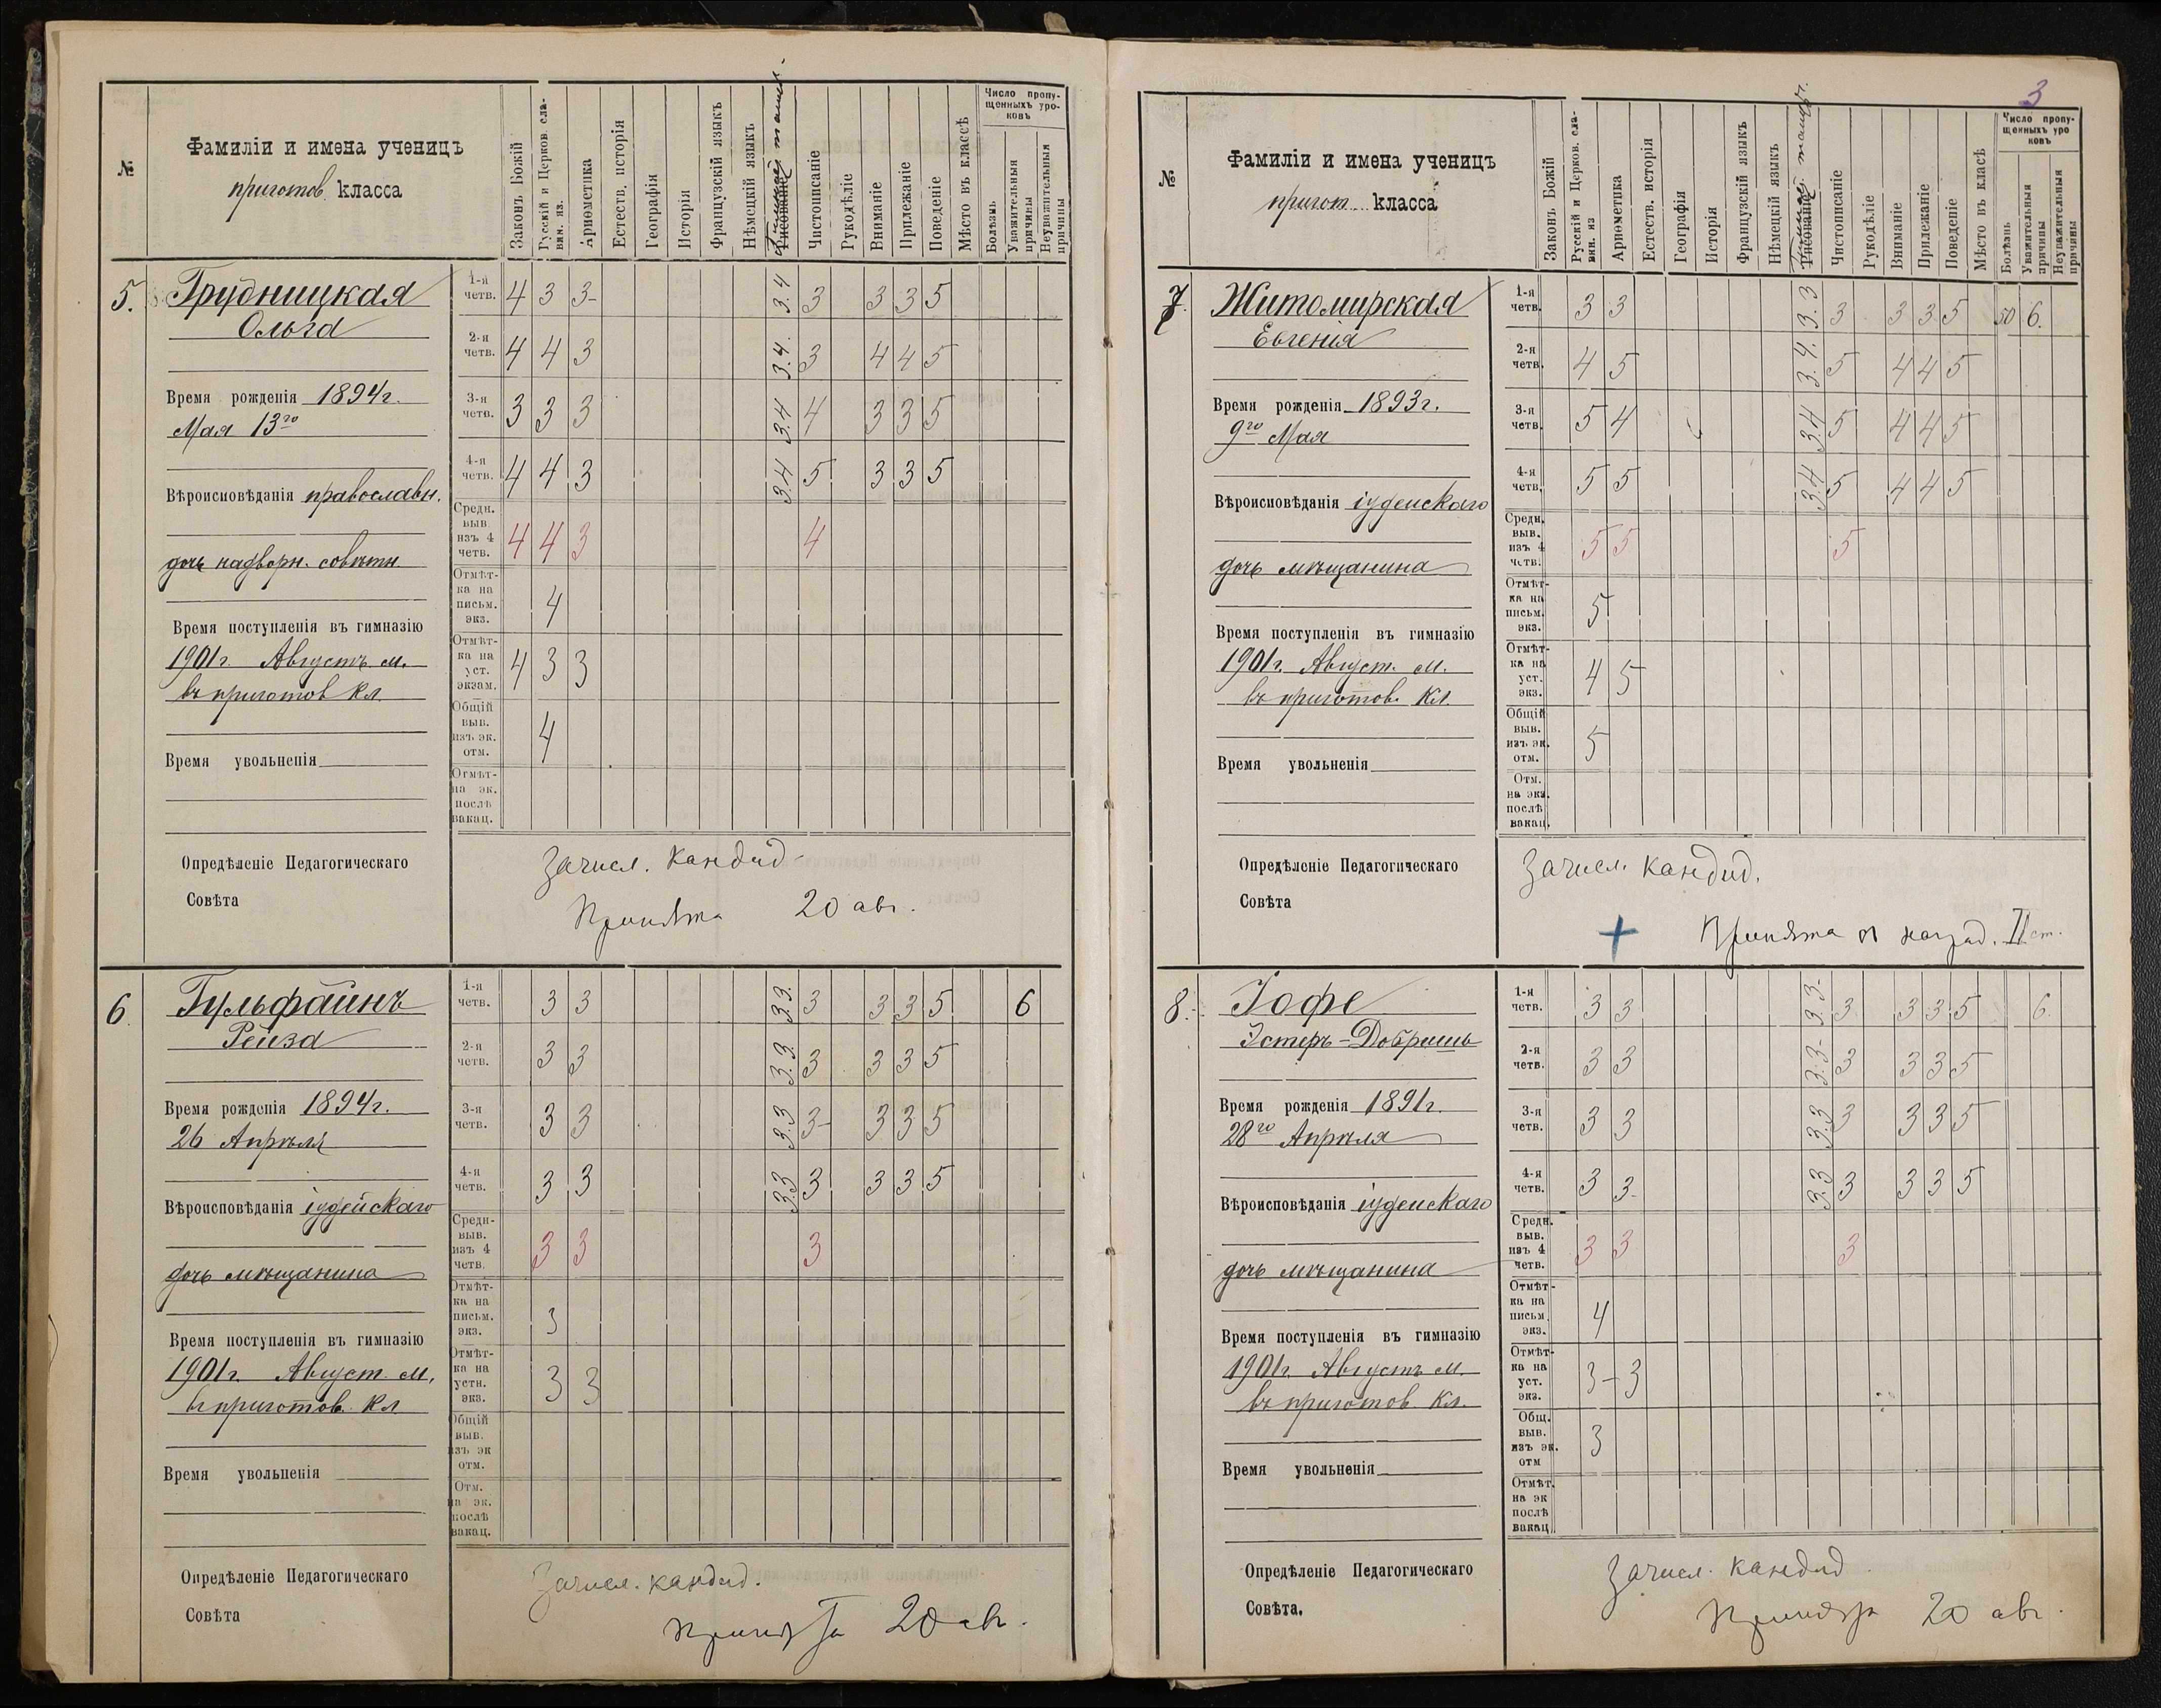 №
Фамиліи и имена ученицъ
приготов. класса
Законъ Божій
Русскій и Церков. сла-
вян. яз.
Ариѳметика
Естеств. исторія
Географія
Исторія
Французскій языкъ
Нѣмецкій языкъ
Рисованіе
Чистописаніе
Рукодѣліе
Вниманіе
Прилежаніе
Поведеніе
Мѣсто въ классѣ
Число пропу-
щенныхъ уро-
ковъ
Болѣзнь
Уважительныя
причины
Неуважительныя
причины
5. Грудницкая
Ольга
Время рожденія 1894 г.
Мая 13го
Вѣроисповѣданія православн.
дочь надворн. совѣтн
Время поступленія въ гимназію
1901 г. Августъ м.
въ приготов кл
Время увольненія
1-я четв. 4 3 3- 3.4 3 3 3 5
2-я четв. 4 4 3 3.4. 3 4 4 5
3-я четв. 3 3 3 3.4 4 3 3 5
4-я четв. 4 4 3 3.4 5 3 3 5
Средн. выв. изъ 4 четв. 4 4 3 4
Отмѣт-ка на письм. экз. 4
Отмѣт-ка на уст. экзам. 4 3 3
Общій выв. изъ эк. отм. 4
Отмѣт-на эк. послѣ вакац.
Опредѣленіе Педагогическаго
Совѣта
Зачисл. кандид-
Принята 20 авг.
6. Гульфайнъ
Рейза
Время рожденія 1894 г.
26 Апрѣля
Вѣроисповѣданія іудейскаго
дочь мѣщанина
Время поступленія въ гимназію
1901 г. Август. м.
въ приготов. кл
Время увольненія
1-я четв. 3 3 3.3. 3 3 3 5 6
2-я четв. 3 3 3.3. 3 3 3 5
3-я четв. 3 3 3.3 3- 3 3 5
4-я четв. 3 3 3.3 3 3 3 5
Средн-выв. изъ 4 четв. 3 3 3
Отмѣт-ка на письм. экз. 3
Отмѣт-ка на устн. экз. 3 3
Общій выв. изъ эк отм.
Отм. на эк. послѣ вакац.
Опредѣленіе Педагогическаго
Совѣта
Зачисл. кандид.
Принята 20 авг.
3
№
Фамиліи и имена ученицъ
пригот. класса
Законъ Божій
Русскій и Церков. сла-
вян. яз
Ариѳметика
Естеств. исторія
Географія
Исторія
Французскій языкъ
Нѣмецкій языкъ
Рисованіе
Чистописаніе
Рукодѣліе
Вниманіе
Прилежаніе
Поведеніе
Мѣсто въ класѣ
Число пропу-
щенныхъ уро
ковъ
Болѣзнь
Уважительныя
причины
Неуважительныя
причины
7. Житомирская
Евгенія
Время рожденія 1893 г.
9го Мая
Вѣроисповѣданія іудейскаго
дочь мѣщанина
Время поступленія въ гимназію
1901 г. Август. м.
въ приготов. кл.
Время увольненія
1-я четв. 3 3 3.3 3 3 3 5 50 6.
2-я четв. 4 5 3.4. 5 4 4 5
3-я четв. 5 4 3.4 5 4 4 5
4-я четв. 5 5 3.4 5 4 4 5
Средн. выв. изъ 4 четв. 5 5 5
Отмѣт-ка на письм. экз. 5
Отмѣт-ка на уст. экз. 4 5
Общій выв. изъ эк. отм. 5
Отм. на экз. послѣ вакац.
Опредѣленіе Педагогическаго
Совѣта
Зачисл. кандид.
+ Принята съ наград. II ст.
8. Іофе
Эстеръ-Добрышь
Время рожденія 1891 г.
28го Апрѣля
Вѣроисповѣданія іудейскаго
дочь мѣщанина
Время поступленія въ гимназію
1901 г. Августъ м.
въ приготов. кл.
Время увольненія
1-я четв. 3 3 3.3- 3 3 3 5 6.
2-я четв. 3 3 3.3- 3 3 3 5
3-я четв. 3 3 3.3 3 3 3 5
4-я четв. 3 3- 3.3 3 3 3 5
Средн. выв. изъ 4 четв. 3 3 3
Отмѣт-ка на письм. экз. 4
Отмѣт-ка на уст. экз. 3- 3
Общ. выв. изъ эк. отм 3
Отмѣт. на эк послѣ вакац
Опредѣленіе Педагогическаго
Совѣта.
Зачисл. кандид
Принята 20 авг.